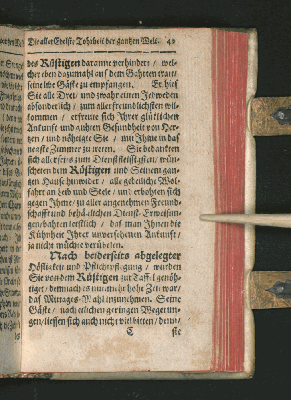 Die aller Edelste Tohrheit der gantzen Welt. 49
des Rüstigen daran verhindert / wel-
cher eben dazumahl auf dem
seine liebe Gäste zu empfangen. Er hieß
Sie alle Drei / und zwahr einen Jedweden
absonderlich / zum aller freundlichsten wil-
kommen / erfreute sich Ihrer glüklichen
Ankunft und guhten Gesundheit von Her-
tzen / und nöhtigte Sie / mit Ihme in das
neaste Zimmer zu treten. Sie bedankten
sich allerseits zum Dienstfleissigsten / wün-
scheten dem Rüstigen und Seinem gan-
tzen Hause hinwider / alle gedeiliche Wol-
fahrt an Leib und Seele / und erbohten sich
gegen Ihme / zu aller angenehmen Freund-
schaft und behäglichen Dienst-Erweisun-
gen / bahten letstlich / daß man Ihnen die
Kühnheit Ihrer unversehenen Ankunft /
ja nicht müchte verübelen.
Nach beiderseits abgelegter
Höfligkeit und Pflichtmässigung / wurden
Sie von dem Rüstigen zur Taffel genöh-
tiget / dem nach es nunmehr hohe Zeit war /
das Mittages-Mahl einzunehmen. Seine
Gäste / nach etlichen geringen Wegerun-
gen / liessen sich auch nicht viel bitten / denn /
C sie